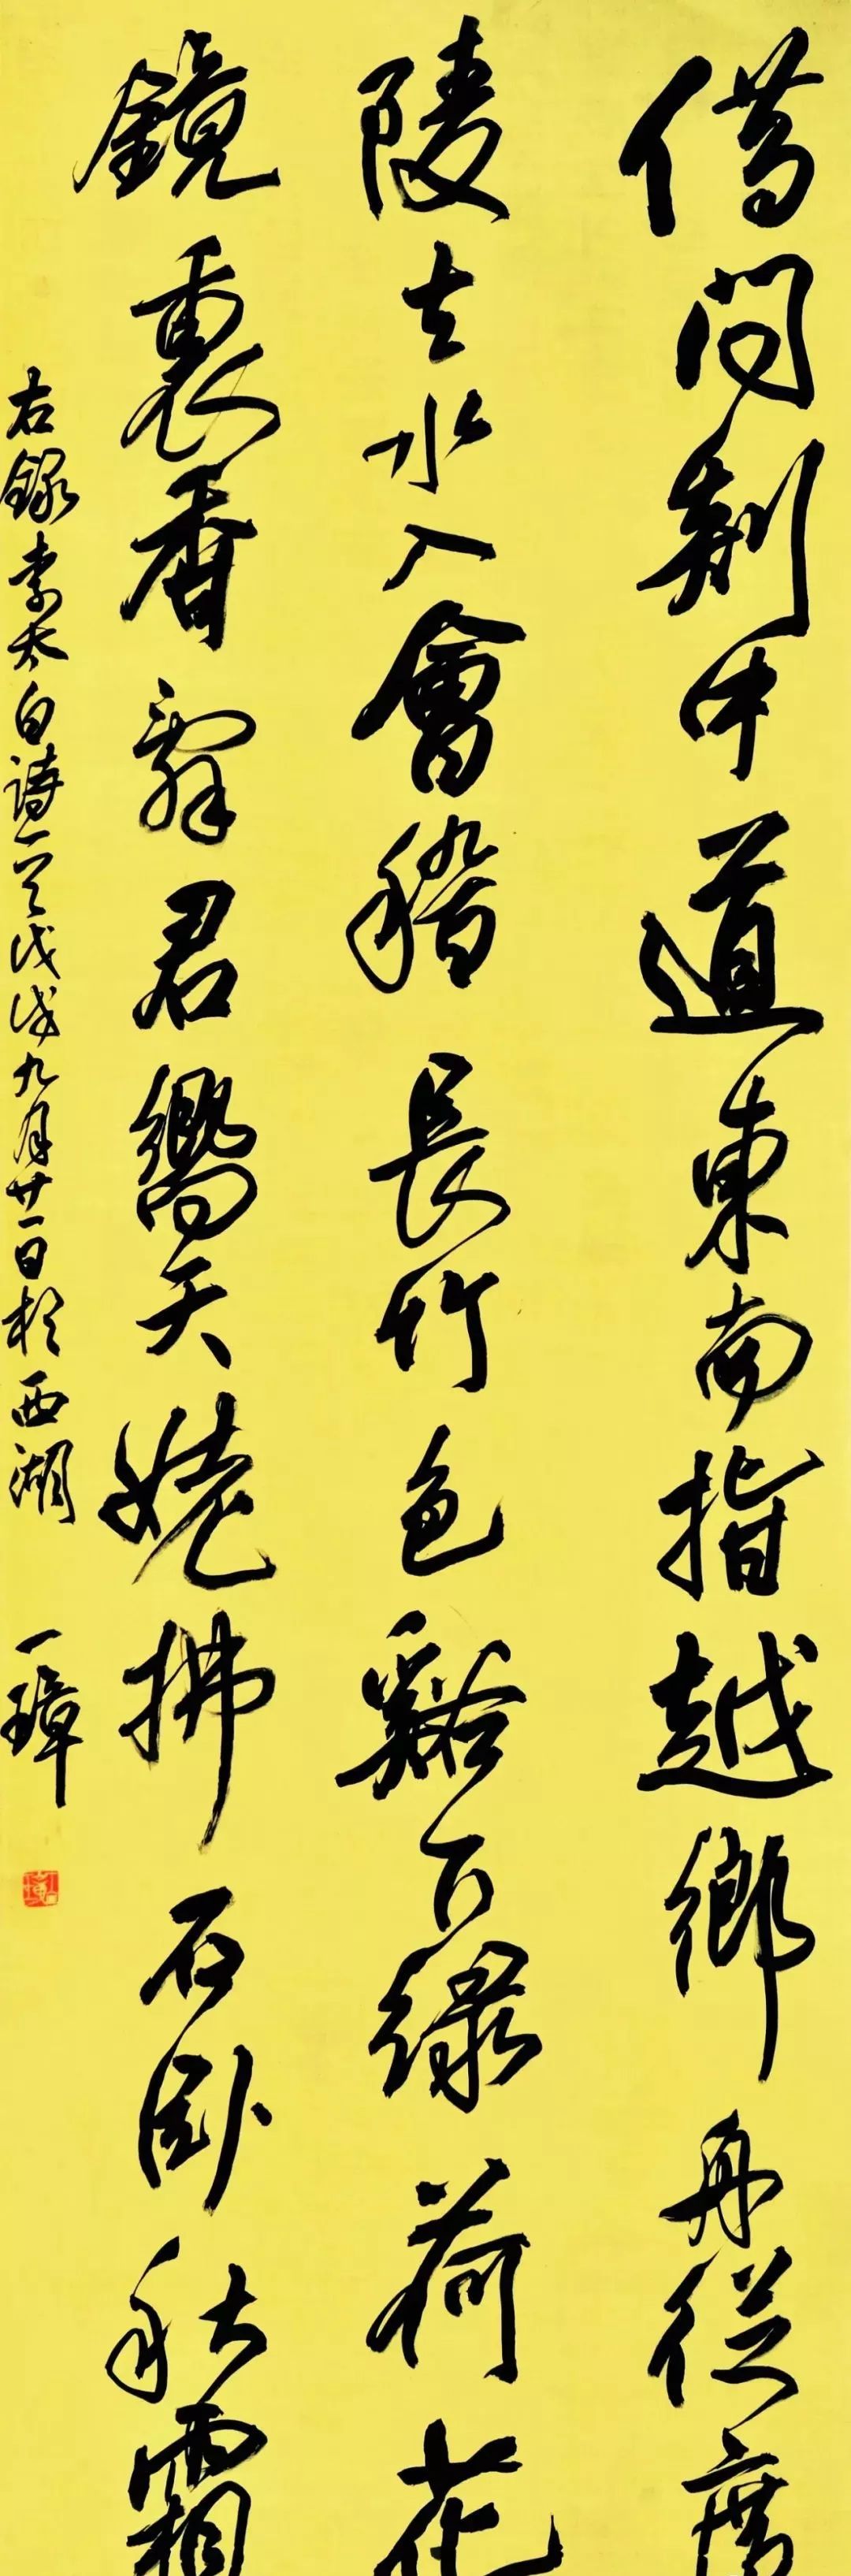 借問剡中道東南指越鄉舟從廣
陵去水入會稽長竹色谿下綠荷花
鏡裏香辭君嚮天姥拂石卧秋霜
右錄李太白詩一首戊戌九月廿一日於西湖
一璋